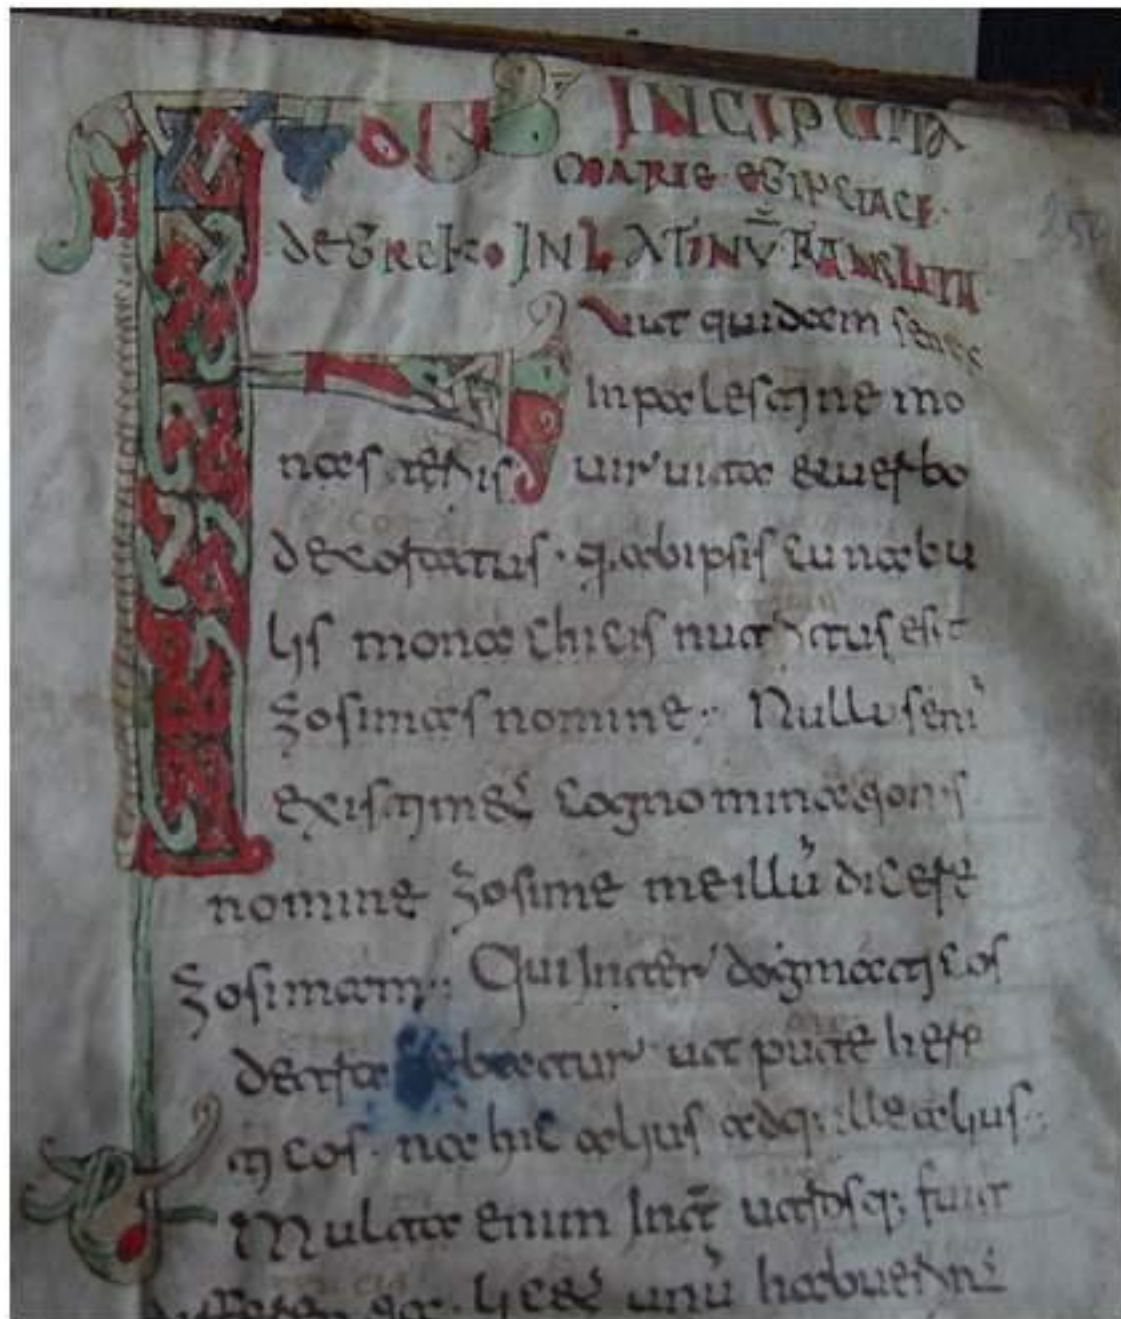 INCIPIT UITA
MARIE EGIPCIACE
de GREKO IN LATINŪ TRANSLATA
Fuit quidam senex
in palestine mo
nasteriis uir uita et uerbo
decoratus · q, ab ipsis cunabu
lis monachicis nutritus est
zosimas nomine : Nullus eni
existimet cognominationis
nomine zosime me illū dicere
zosimam : Qui inter dogmaticos
btatur ut pute here
ticos · nā hic alius adq; ille alius :
Multa enim int utrosq; fuit
unū habuerint